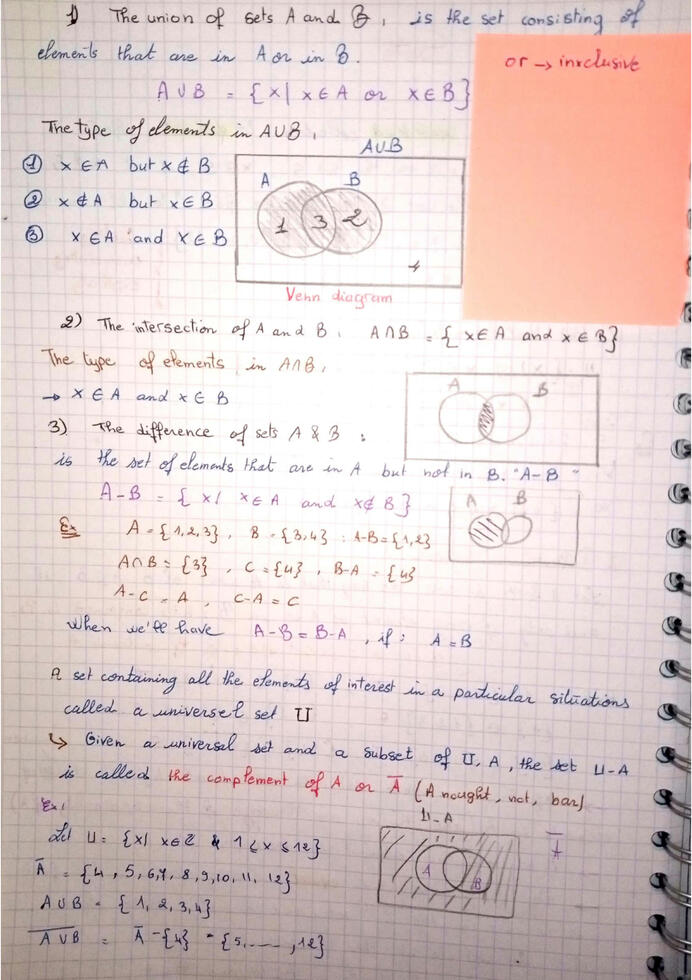 1) The union of sets A and B, is the set consisting of
elements that are in A or in B.
or → inxclusive
A ∪ B = { x | x ∈ A or x ∈ B}
The type of elements in A∪B,
① x ∈ A but x ∉ B
② x ∉ A but x ∈ B
③ x ∈ A and x ∈ B
A∪B
A B
1 3 2
4
Venn diagram
2) The intersection of A and B, A∩B = { x ∈ A and x ∈ B}
The type of elements in A∩B,
→ x ∈ A and x ∈ B
A B
3) The difference of sets A & B :
is the set of elements that are in A but not in B. "A-B"
A-B = { x | x ∈ A and x ∉ B}
A B
Ex A = {1,2,3}, B = {3,4} : A-B = {1,2}
A∩B = {3}, C = {4}, B-A = {4}
A-C = A, C-A = C
When we'll have A-B = B-A, if : A = B
A set containing all the elements of interest in a particular situations
called a universel set U
↳ Given a universal set and a subset of U, A, the set U-A
is called the complement of A or Ā (A nought, not, bar)
Ex:
U-A
A B
Ā
Let U = {x | x ∈ Z & 1 ≤ x ≤ 12}
Ā = {4, 5, 6, 7, 8, 9, 10, 11, 12}
A∪B = {1, 2, 3, 4}
A̅ ̅∪̅ ̅B̅ = Ā - {4} = {5, ----, 12}